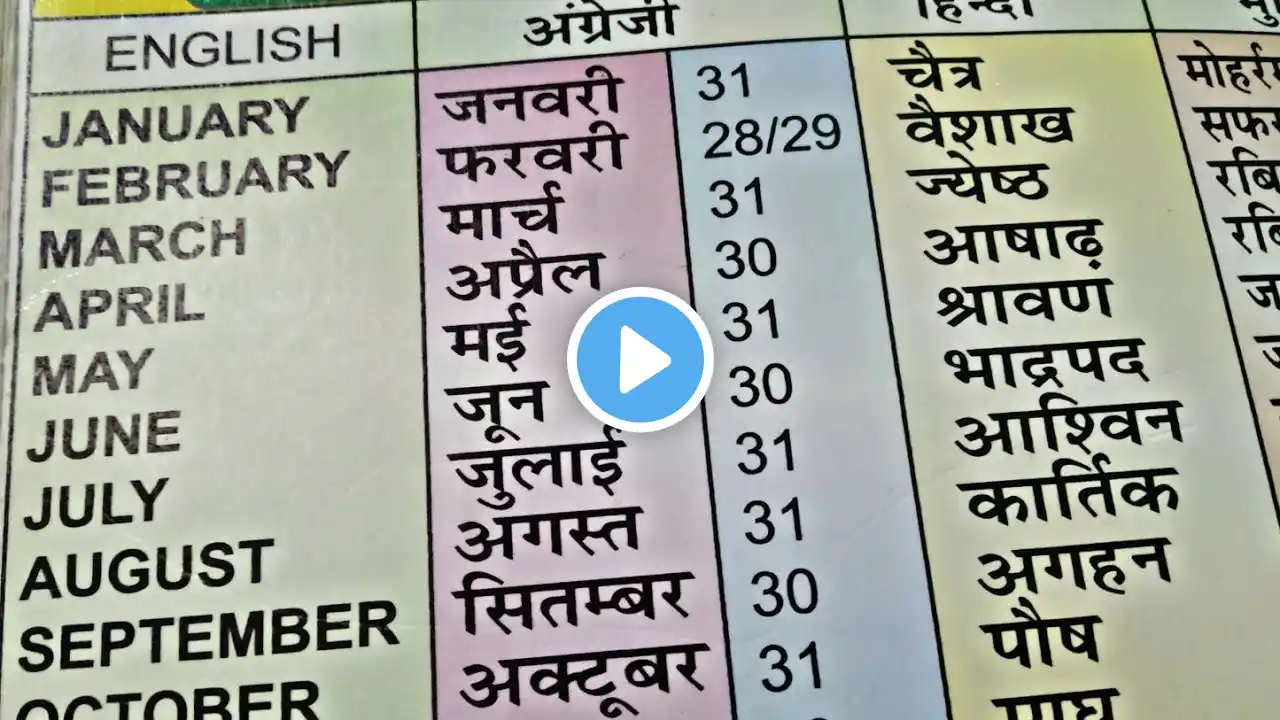 ENGLISH अंग्रेजी हिन्दी
JANUARY जनवरी 31 चैत्र
FEBRUARY फरवरी 28/29 वैशाख
MARCH मार्च 31 ज्येष्ठ
APRIL अप्रैल 30 आषाढ़
MAY मई 31 श्रावण
JUNE जून 30 भाद्रपद
JULY जुलाई 31 आश्विन
AUGUST अगस्त 31 कार्तिक
SEPTEMBER सितम्बर 30 अगहन
OCTOBER अक्टूबर 31 पौष
माघ